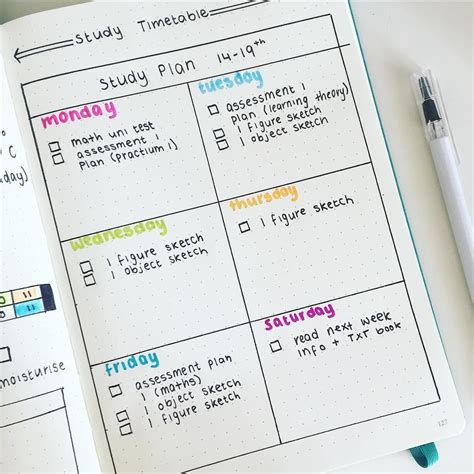 Study Timetable
Study Plan 14-19th
monday
math uni test
assessment 1
plan (practium 1)
tuesday
assessment 1
plan (learning theory)
1 figure sketch
1 object sketch
wednesday
1 figure sketch
1 object sketch
thursday
1 figure sketch
friday
assessment plan
1 (maths)
1 object sketch
1 figure sketch
saturday
read next week
info + TXT book
C
day)
11
11
moisturise
127